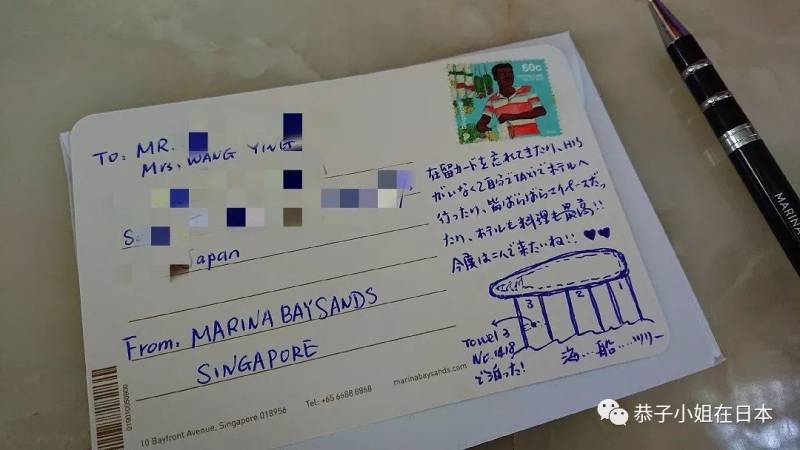 TO: MR.
MRS. WANG YING
Japan
From: MARINA BAY SANDS
SINGAPORE
60c
在留カードを忘れてきたり、HIS
がいなくて自分でTAXIでホテルへ
行ったり、皆ばらばらでMペースだっ
たり、ホテルも料理も最高!!
今度は二人で来たいね!! ♥♥
3
2
1
Towel 3
No.1418
で泊った!
海…船…ツリー
019010056900
10 Bayfront Avenue, Singapore 018956
Tel: +65 6688 8868
marinabaysands.com
MARINA
恭子小姐在日本